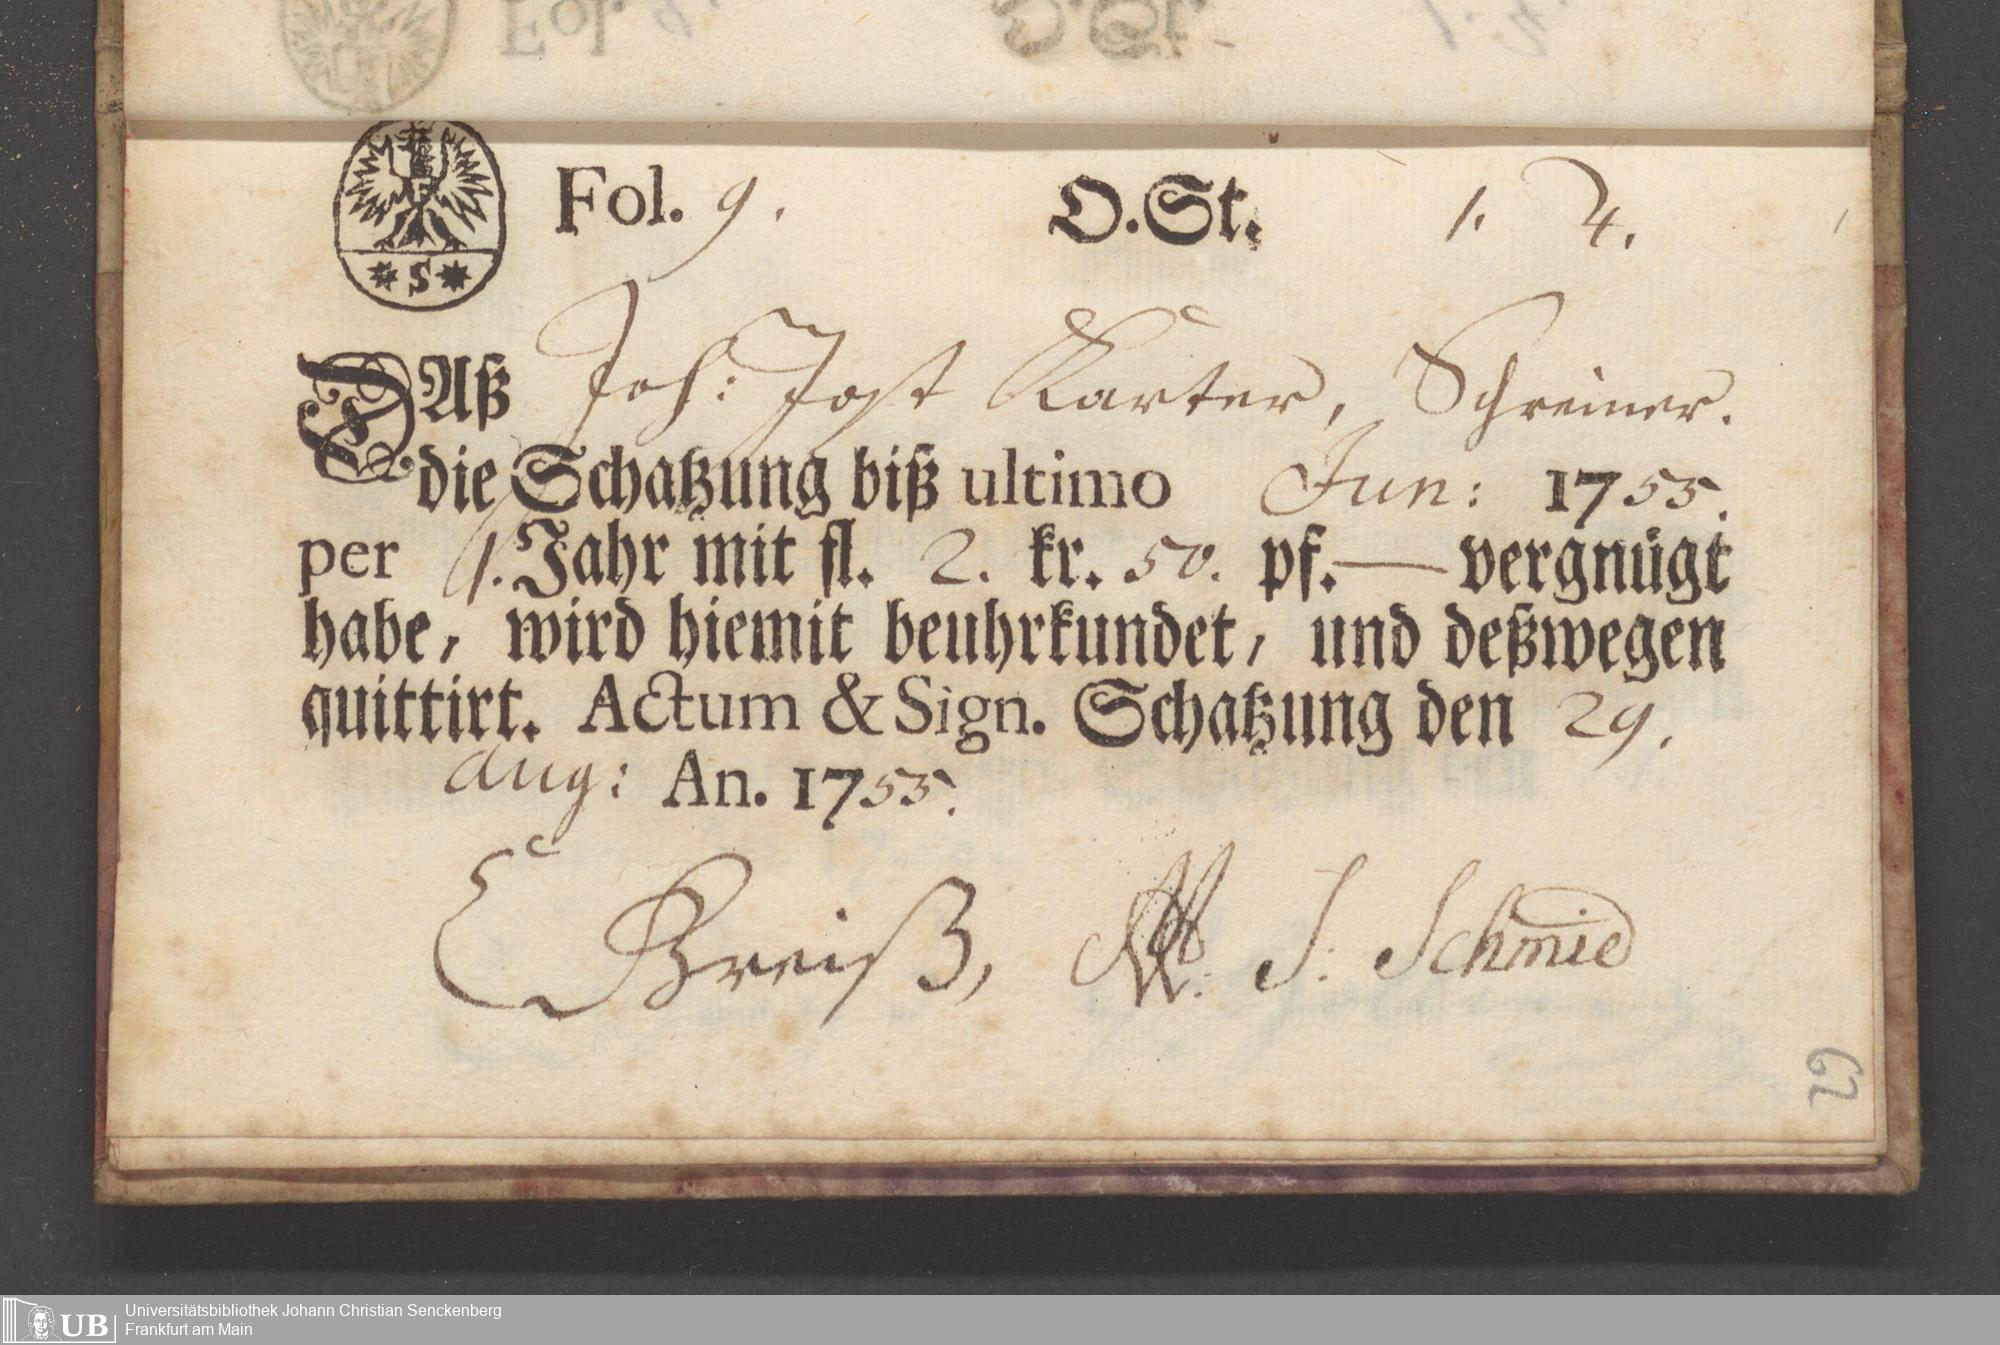 Fol. 9. O.St. 1. 4.
* S *
DAß Joh: Jost Karter, Schreiner.
die Schatzung biß ultimo Jun: 1755.
per 1. Jahr mit fl. 2. kr. 50. pf. — vergnügt
habe, wird hiemit beuhrkundet, und deßwegen
quittirt. Actum & Sign. Schatzung den 29.
Aug: An. 1755.
Greiß, J. Schmid
62
UB
Universitätsbibliothek Johann Christian Senckenberg
Frankfurt am Main